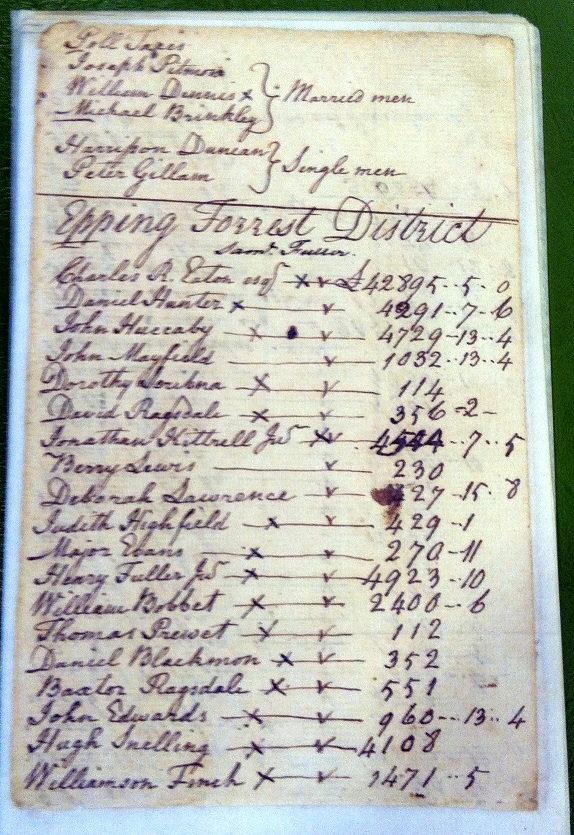 Poll Taxes
Joseph Pitman
William Dennis x
Married men
Michael Brinkley
Harrison Duncan
Single men
Peter Gillam
Epping Forrest District
Saml. Fuller.
Charles R. Eaton esqr x v £42895..5..0
Daniel Hunter x v 4291..7..6
John Huccaby x v 4729..13..4
John Mayfield v 1032..13..4
Dorothy Scribna x v 114
David Ragsdale x v 356=2-
Jonathan Kittrell Jur x v 4544..7..5
Berry Lewis v 230
Deborah Lawrence v 427-15.8
Judith Highfield x v 429-1
Major Evans x v 270-11
Henry Fuller Jur x v 4923..10
William Bobbet x v 2400..6
Thomas Prewet x v 112
Daniel Blackmon x v 352
Baxtor Ragsdale x v 551 -
John Edwards x v 960..13..4
Hugh Snelling x v 4108
Williamson Finch x v 1471..5